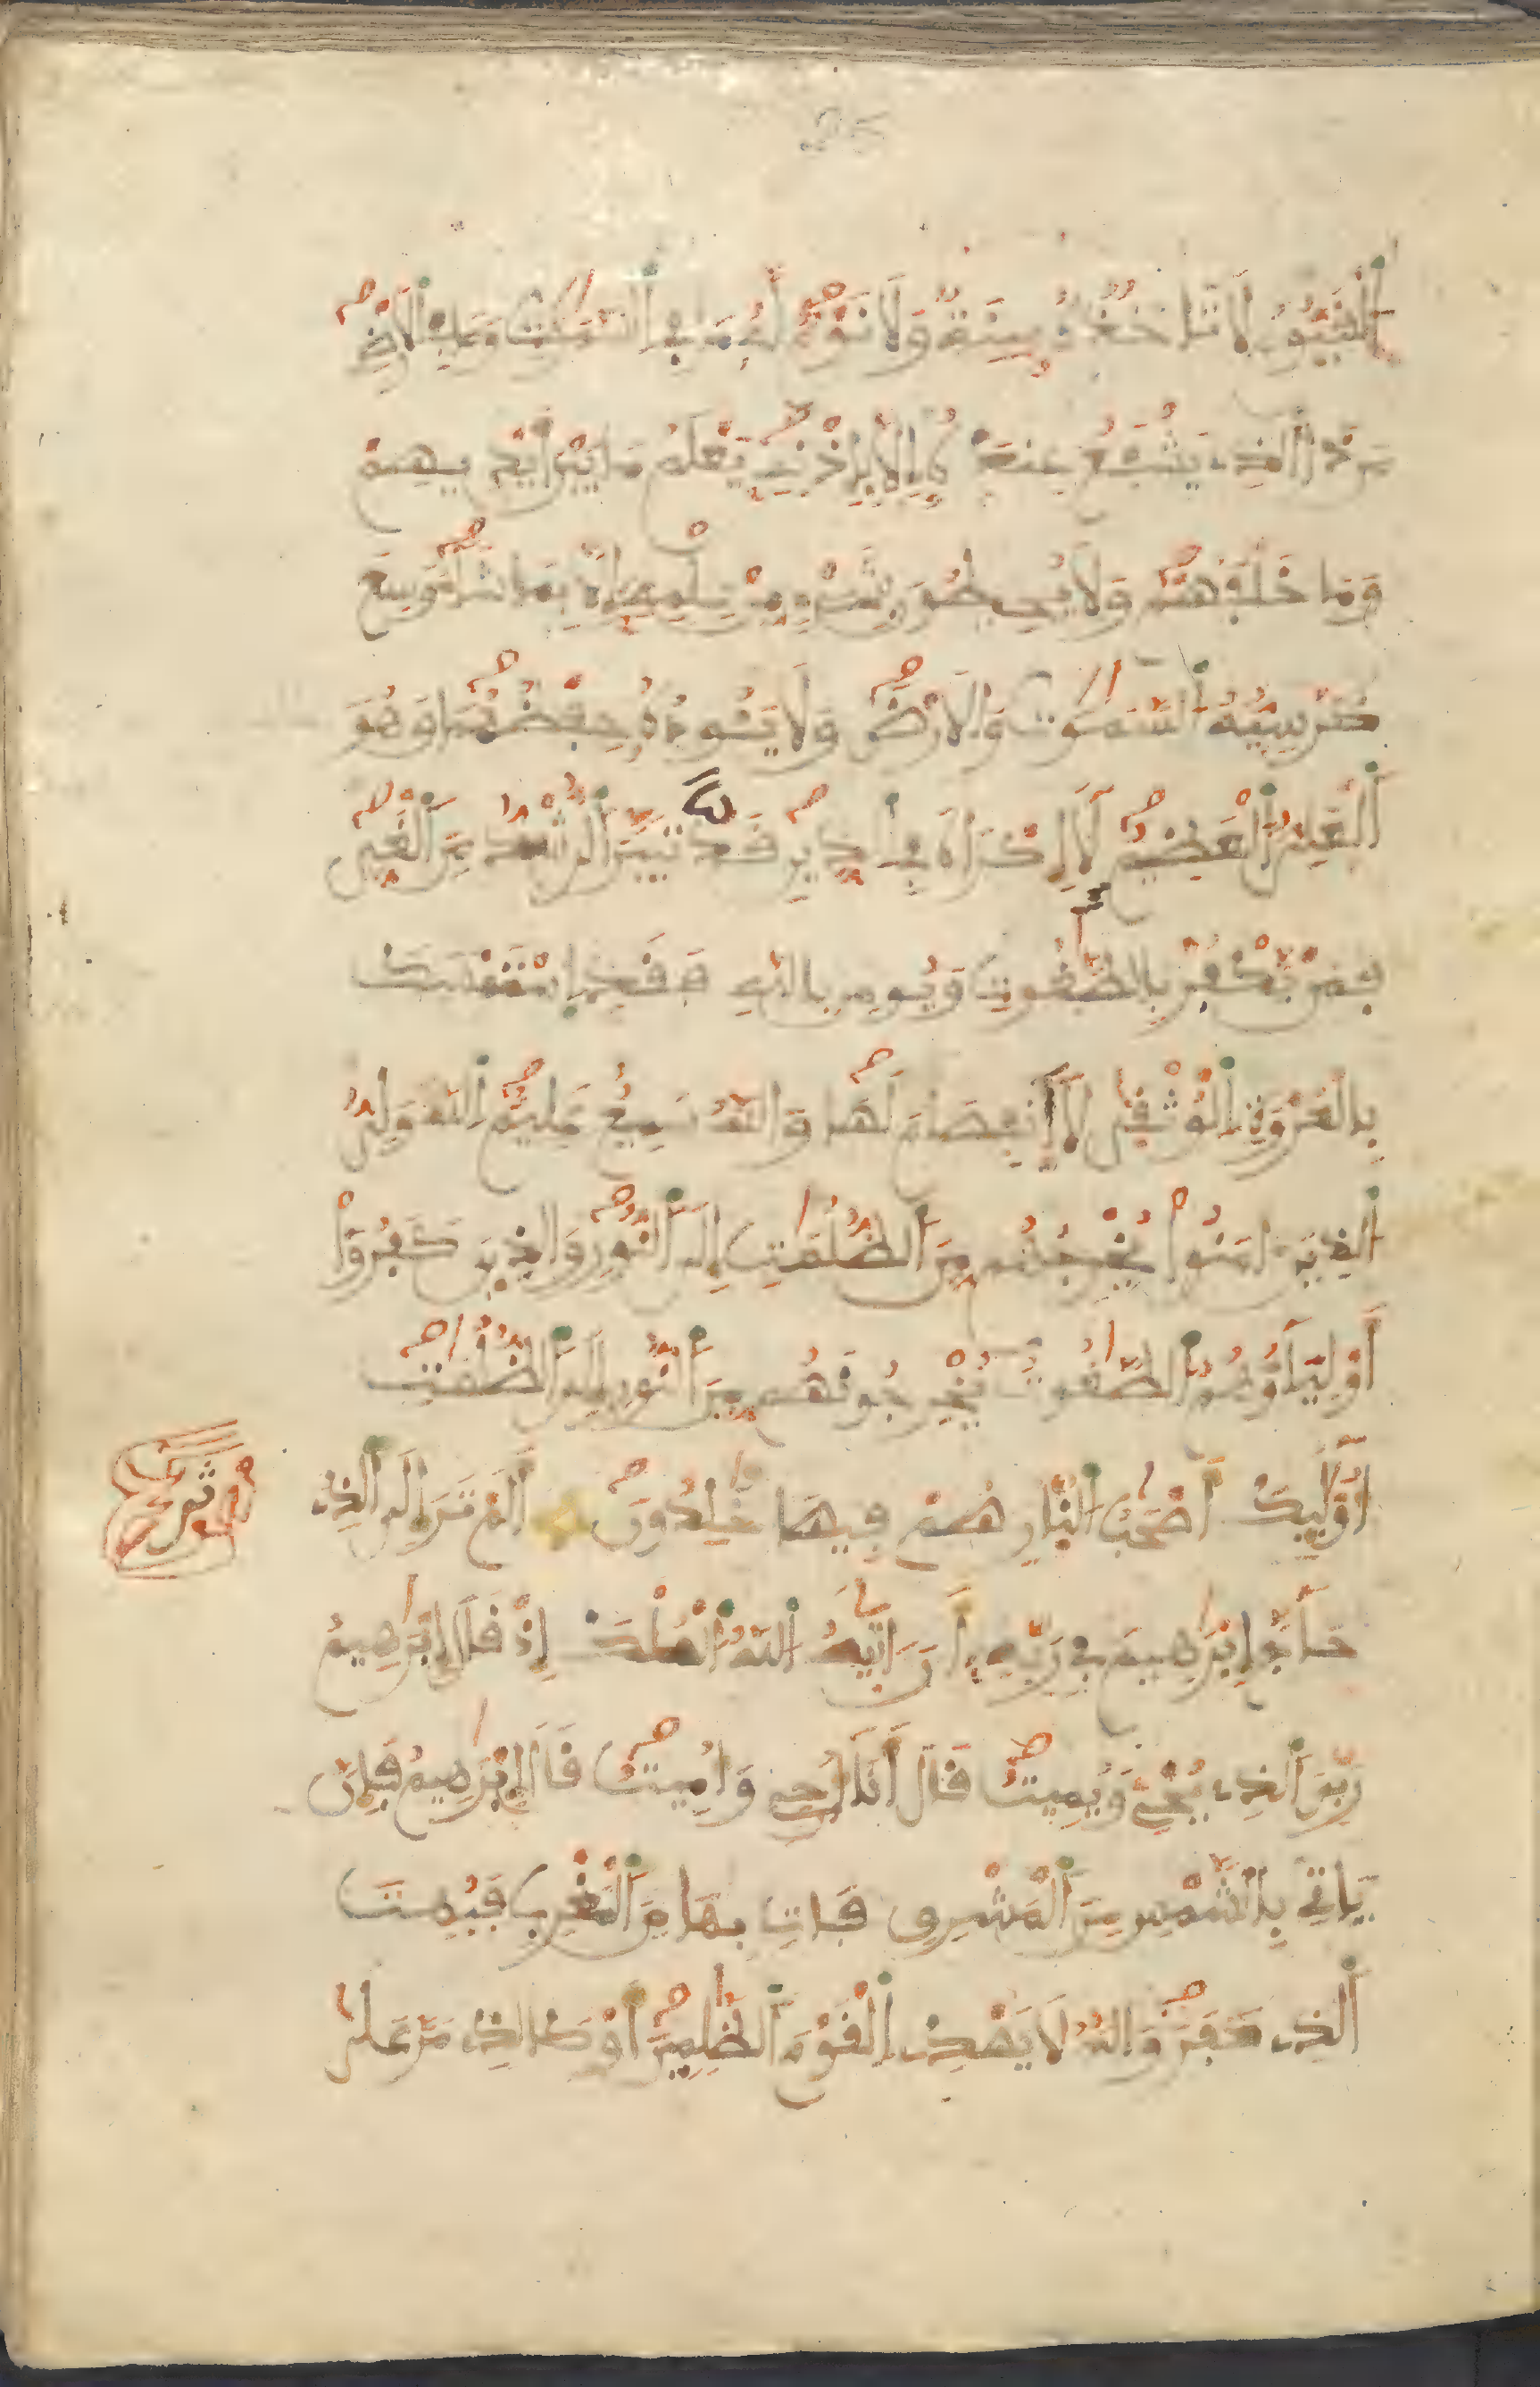 26
ٱلْقَيُّومُ لَا تَاخُذُهُۥ سِنَةٌ وَلَا نَوْمٌ لَهُۥ مَا فِے ٱلسَّمَٰوَٰتِ وَمَا فِے ٱلْأَرْضِ
مَن ذَا ٱلذِے يَشْفَعُ عِندَهُۥ إِلَّا بِإِذْنِهِۦ يَعْلَمُ مَا بَيْنَ أَيْدِيهِمْ
وَمَا خَلْفَهُمْ وَلَا يُحِيطُونَ بِشَےْءٍ مِّنْ عِلْمِهِۦ إِلَّا بِمَا شَآءَ وَسِعَ
كُرْسِيُّهُ ٱلسَّمَٰوَٰتِ وَالْأَرْضَ وَلَا يَـُٔودُهُۥ حِفْظُهُمَا وَهُوَ
ٱلْعَلِىُّ ٱلْعَظِيمُ لَآ إِكْرَاهَ فِے ٱلدِّينِ قَد تَّبَيَّنَ ٱلرُّشْدُ مِنَ ٱلْغَىِّ
فَمَنْ يَّكْفُرْ بِالطَّٰغُوتِ وَيُومِن بِاللَّهِ فَقَدِ اِسْتَمْسَكَ
بِالْعُرْوَةِ ٱلْوُثْقَىٰ لَا ٱنفِصَامَ لَهَا وَاللَّهُ سَمِيعٌ عَلِيمٌ ٱللَّهُ وَلِىُّ
ٱلذِينَ ءَامَنُوا يُخْرِجُهُم مِّنَ ٱلظُّلُمَٰتِ إِلَى ٱلنُّورِ وَالذِينَ كَفَرُوٓا
أَوْلِيَآؤُهُمُ ٱلطَّٰغُوتُ يُخْرِجُونَهُم مِّنَ ٱلنُّورِ إِلَى ٱلظُّلُمَٰتِ
أُوْلَٰٓئِكَ أَصْحَٰبُ ٱلنَّارِ هُمْ فِيهَا خَٰلِدُونَ أَلَمْ تَرَ إِلَى ٱلذِے
حَآجَّ إِبْرَٰهِيمَ فِے رَبِّهِۦٓ أَنَ اٰتَىٰهُ ٱللَّهُ ٱلْمُلْكَ إِذْ قَالَ إِبْرَٰهِيمُ
رَبِّىَ ٱلذِے يُحْىِۦ وَيُمِيتُ قَالَ أَنَآ أُحْىِۦ وَأُمِيتُ قَالَ إِبْرَٰهِيمُ فَإِنَّ ٱللَّهَ
يَاتِے بِالشَّمْسِ مِنَ ٱلْمَشْرِقِ فَاتِ بِهَا مِنَ ٱلْمَغْرِبِ فَبُهِتَ
ٱلذِے كَفَرَ وَاللَّهُ لَا يَهْدِے ٱلْقَوْمَ ٱلظَّٰلِمِينَ أَوْ كَالذِے مَرَّ عَلَىٰ